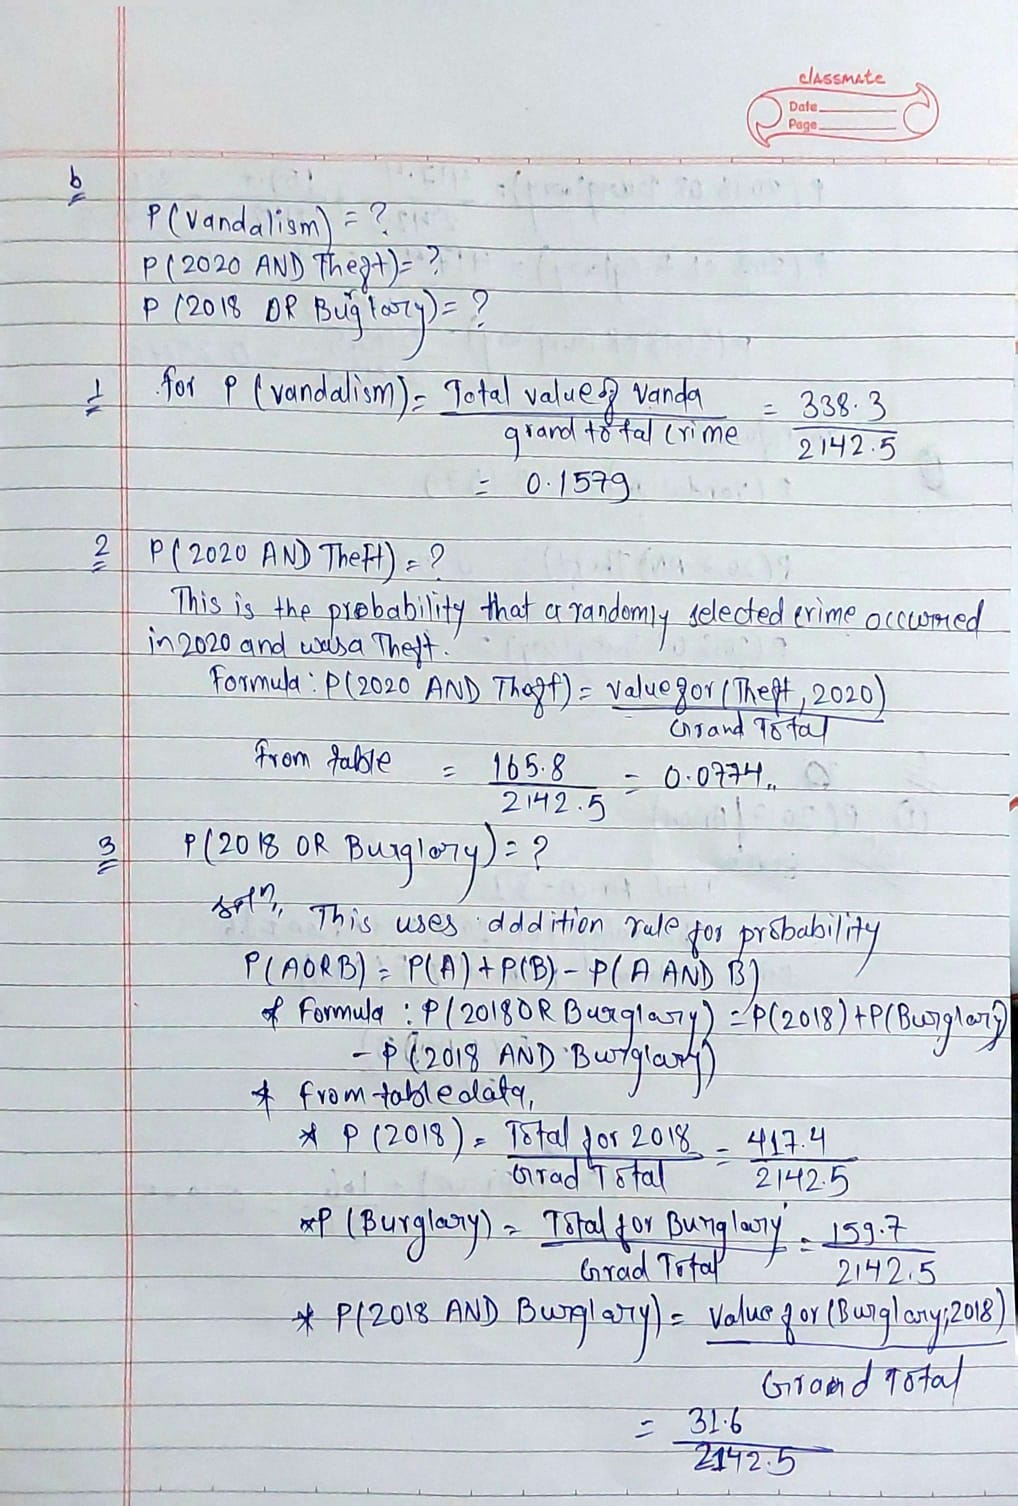 classmate
Date
Page
b
P(vandalism) = ?
P(2020 AND Theft) = ?
P(2018 OR Burglary) = ?
1 for P(vandalism) = Total value of Vanda / grand total crime = 338.3 / 2142.5
= 0.1579
2 P(2020 AND Theft) = ?
This is the probability that a randomly selected crime occurred
in 2020 and was a Theft.
Formula : P(2020 AND Theft) = value for (Theft, 2020) / Grand Total
From table = 165.8 / 2142.5 = 0.0774
3 P(2018 OR Burglary) = ?
solⁿ, This uses addition rule for probability
P(A OR B) = P(A) + P(B) - P(A AND B)
* Formula : P(2018 OR Burglary) = P(2018) + P(Burglary)
- P(2018 AND Burglary)
* from table data,
* P(2018) = Total for 2018 / Grad Total = 417.4 / 2142.5
* P(Burglary) = Total for Burglary / Grad Total = 159.7 / 2142.5
* P(2018 AND Burglary) = Value for (Burglary, 2018) / Grand Total
= 31.6 / 2142.5